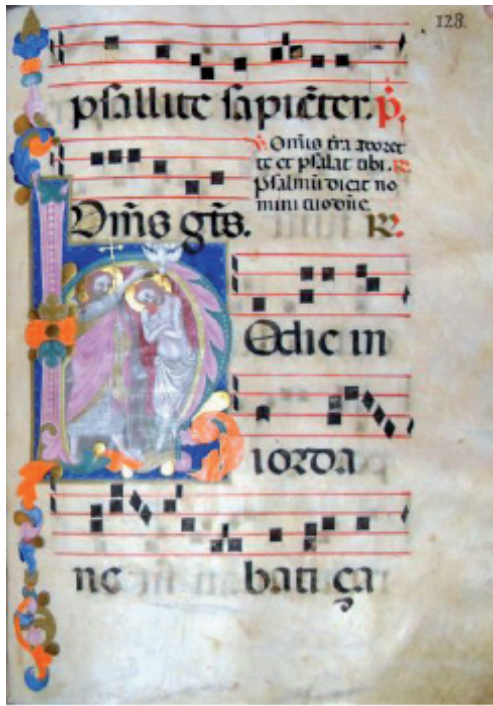 128.
psallite sapiẽter. p̃.
℣. Om̃is t̃ra adoret
te et psalat tibi. ℟.
psalmũ dicat no
mini tuo dñe.
Om̃s gt̃s. ℟.
Hodie in
iorda
ne bati ça